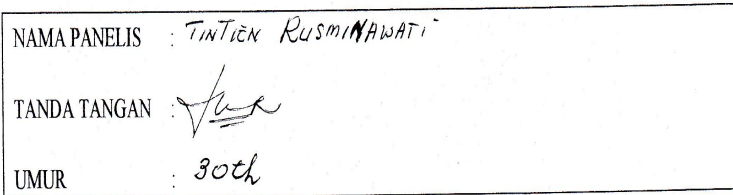 NAMA PANELIS : TINTIEN RUSMINAWATI
TANDA TANGAN :
UMUR : 30th